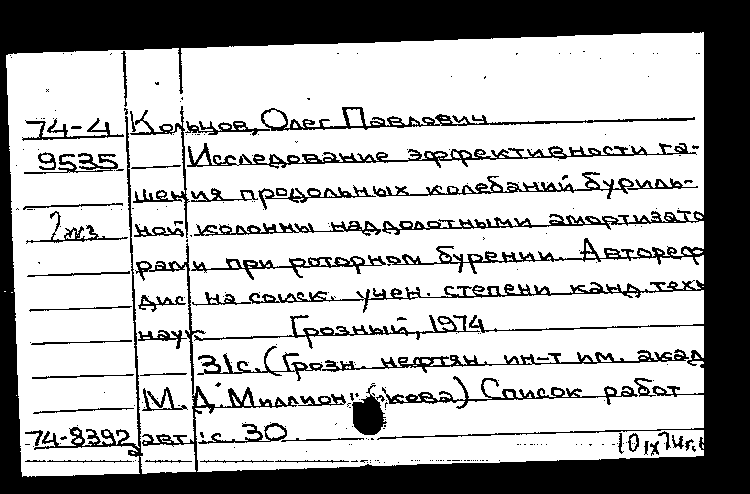 74-4 Кольцов, Олег Павлович
9535 Исследование эффективности га-
шения продольных колебаний буриль-
2экз. ной колонны наддолотными амортизато
рами при роторном бурении. Автореф
дис. на соиск. учен. степени канд. техн
наук Грозный, 1974.
31с. (Грозн. нефтян. ин-т им. акад
М.Д. Миллионщикова) Список работ
74-8392 авт.: с. 30.
10 IX 74г.